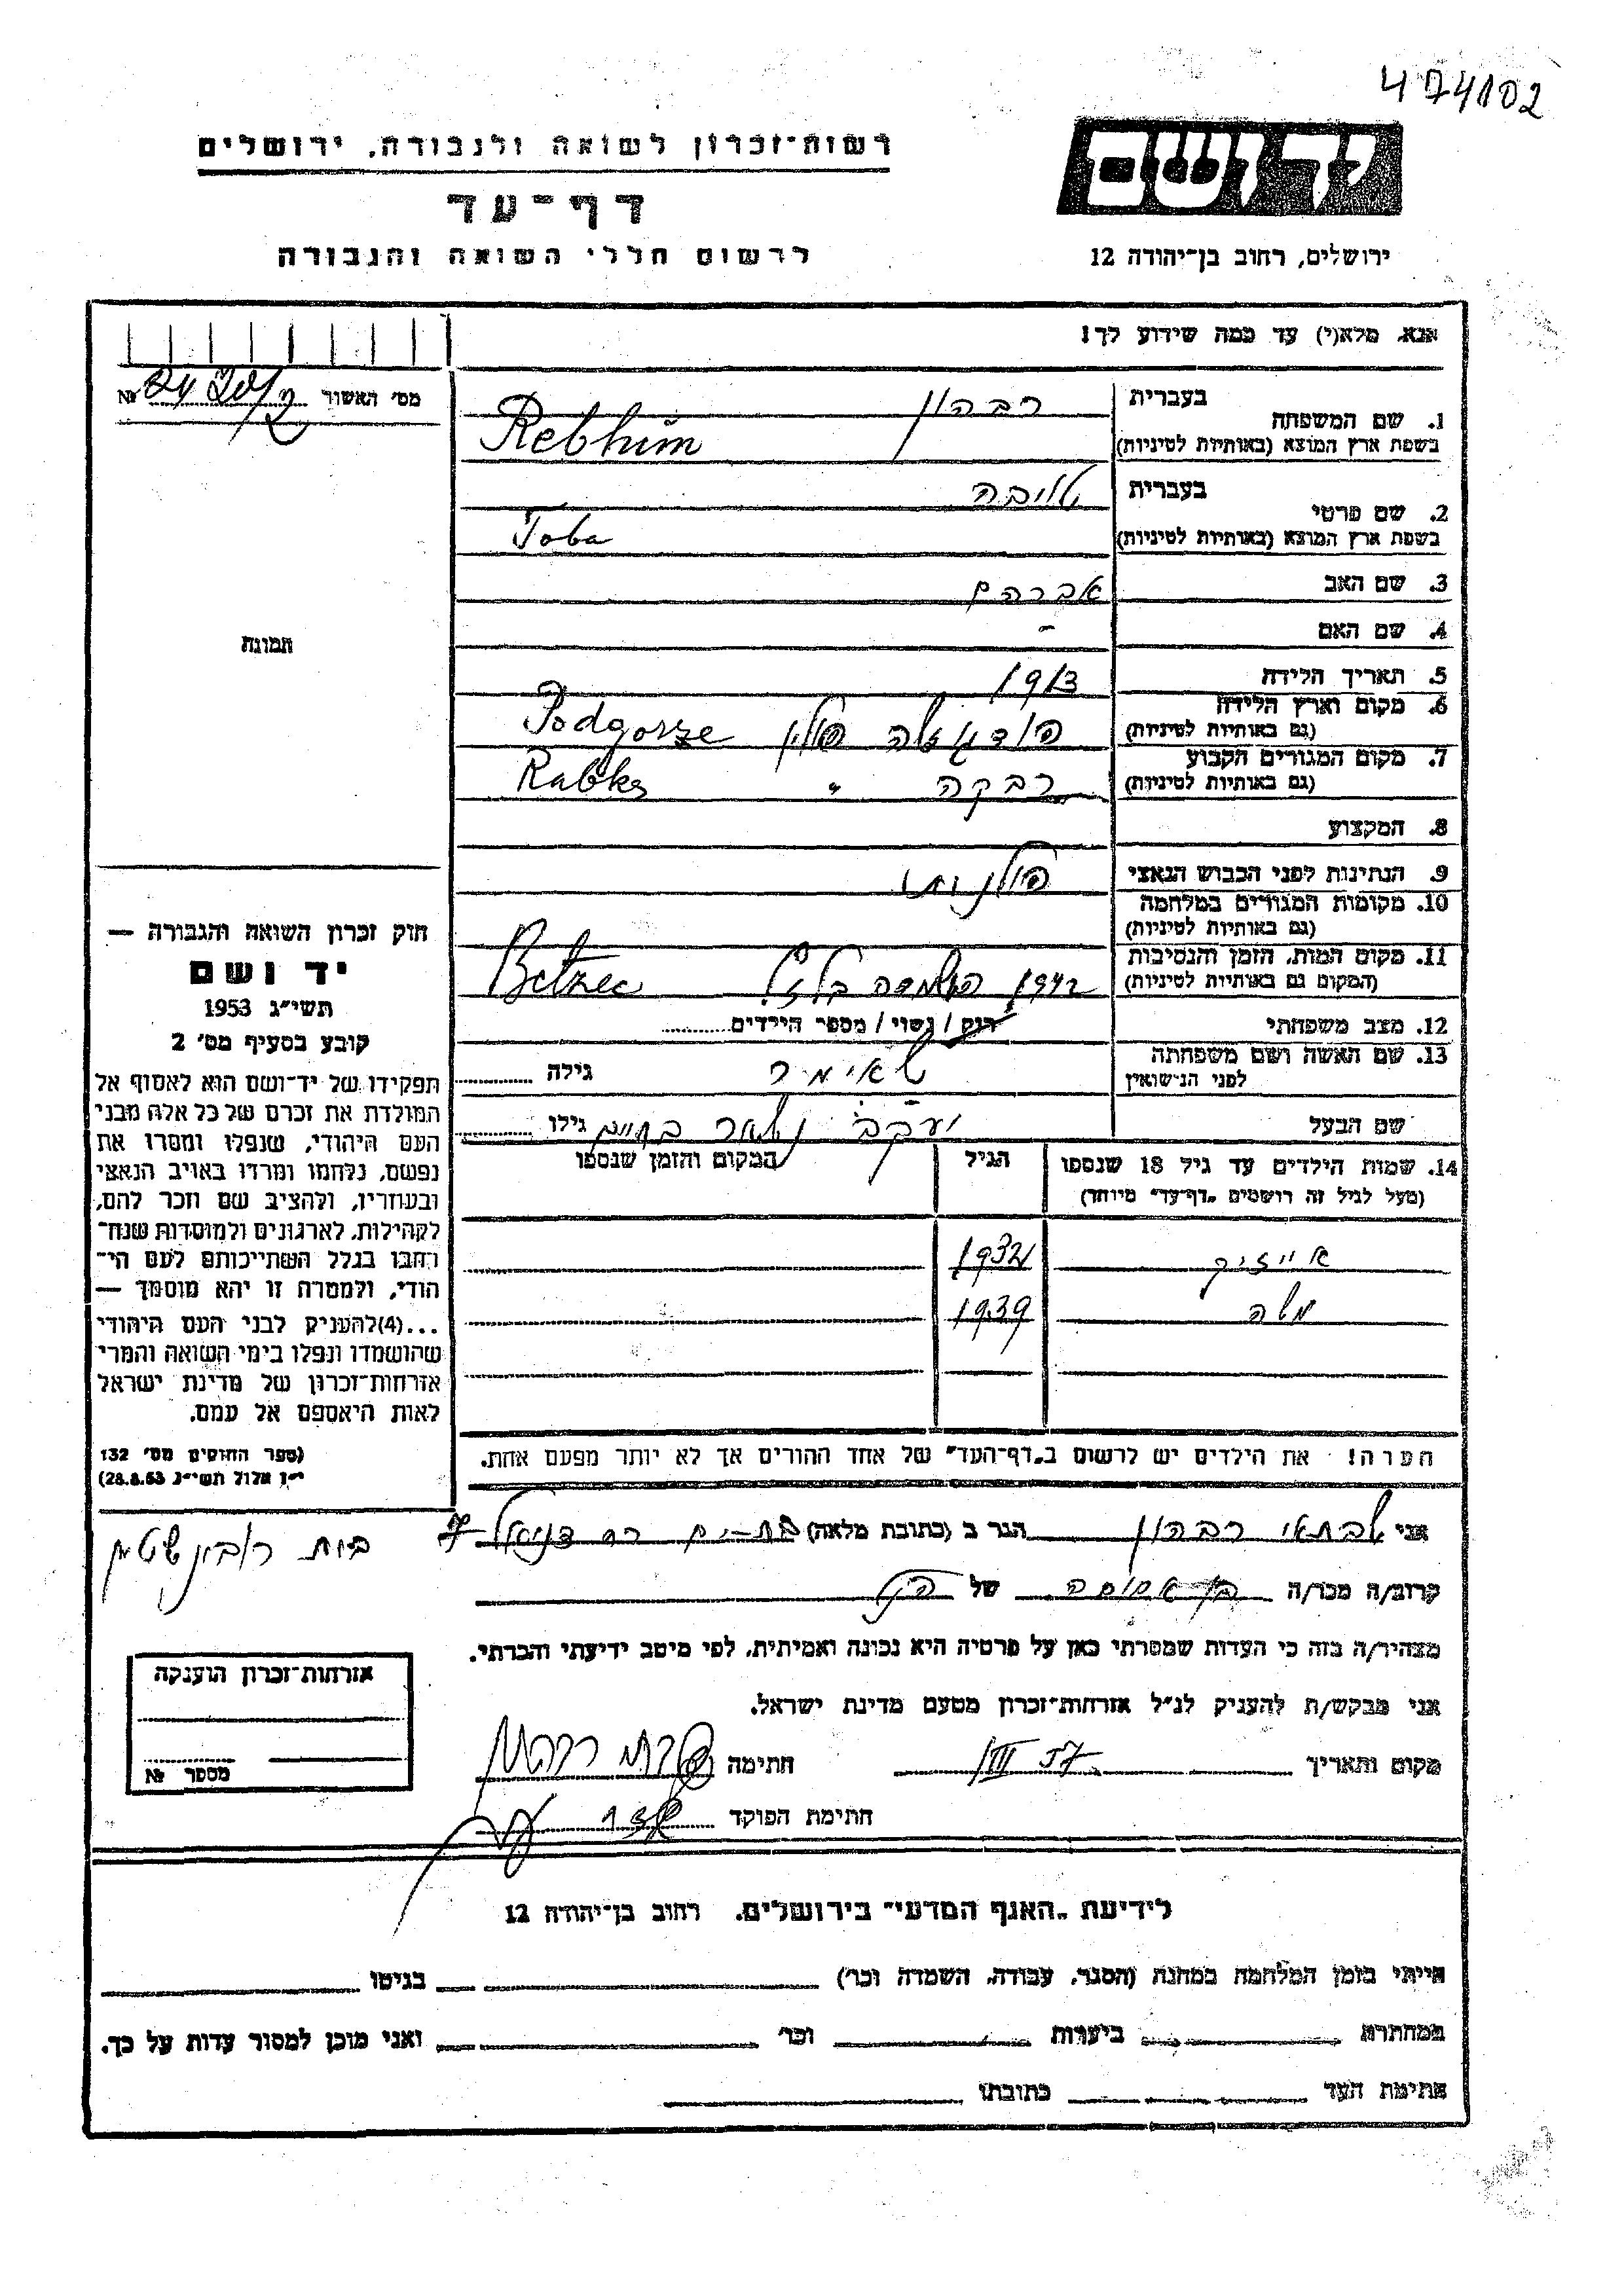 474102
רשות־זכרון לשואה ולגבורה, ירושלים
דף־עד
לרשום חללי השואה והגבורה
יד ושם
ירושלים, רחוב בן־יהודה 12
אנא, מלא(י) עד כמה שידוע לך!
מס' האשור №
1. שם המשפחה בעברית רבהון
בשפת ארץ המוצא (באותיות לטיניות) Rebhun
2. שם פרטי בעברית טויבה
בשפת ארץ המוצא (באותיות לטיניות) Toba
3. שם האב אברהם
4. שם האם -
5. תאריך הלידה 1913
6. מקום וארץ הלידה
(גם באותיות לטיניות) פודגוז'ה פולין Podgorze
7. מקום המגורים הקבוע
(גם באותיות לטיניות) רבקה " Rabka
8. המקצוע
9. הנתינות לפני הכבוש הנאצי פולנית
10. מקומות המגורים במלחמה
(גם באותיות לטיניות)
11. מקום המות, הזמן והנסיבות
(המקום גם באותיות לטיניות) 1942 הושמדה בלז'ץ Betzec
12. מצב משפחתי רווק / נשוי / מספר הילדים
13. שם האשה ושם משפחתה
לפני הנישואין גילה
שם הבעל יעקב נשאר בחיים גילו
14. שמות הילדים עד גיל 18 שנספו הגיל המקום והזמן שנספו
(מעל לגיל זה רושמים "דף־עד" מיוחד)
אייזיק 1932
משה 1939
הערה! את הילדים יש לרשום ב"דף־העד" של אחד ההורים אך לא יותר מפעם אחת.
תמונה
חוק זכרון השואה והגבורה —
יד ושם
תשי"ג 1953
קובע בסעיף מס' 2
תפקידו של יד־ושם הוא לאסוף אל
המולדת את זכרם של כל אלה מבני
העם היהודי, שנפלו ומסרו את
נפשם, נלחמו ומרדו באויב הנאצי
ובעוזריו, ולהציב שם וזכר להם,
לקהילות, לארגונים ולמוסדות שנח־
רבו בגלל השתייכותם לעם הי־
הודי, ולמטרה זו יהא מוסמך —
...(4)להעניק לבני העם היהודי
שהושמדו ונפלו בימי השואה והמרי
אזרחות־זכרון של מדינת ישראל
לאות היאספם אל עמם.
(ספר החוקים מס' 132
י"ז אלול תשי"ג 28.8.53)
אני שבתאי רבהון הגר ב (כתובת מלאה) בת-ים רח דניאל 7
בית רובינשטין
קרוב/ה מכר/ה של
מצהיר/ה בזה כי העדות שמסרתי כאן על פרטיה היא נכונה ואמיתית, לפי מיטב ידיעתי והכרתי.
אני מבקש/ת להעניק לנ"ל אזרחות־זכרון מטעם מדינת ישראל.
מקום ותאריך חתימה
חתימת הפוקד
אזרחות־זכרון הוענקה
מספר №
לידיעת "האגף המדעי" בירושלים, רחוב בן־יהודה 12
הייתי בזמן המלחמה במחנה (הסגר, עבודה, השמדה וכו') בגיטו
במחתרת ביערות וכו' ואני מוכן למסור עדות על כך.
חתימת העד כתובתו